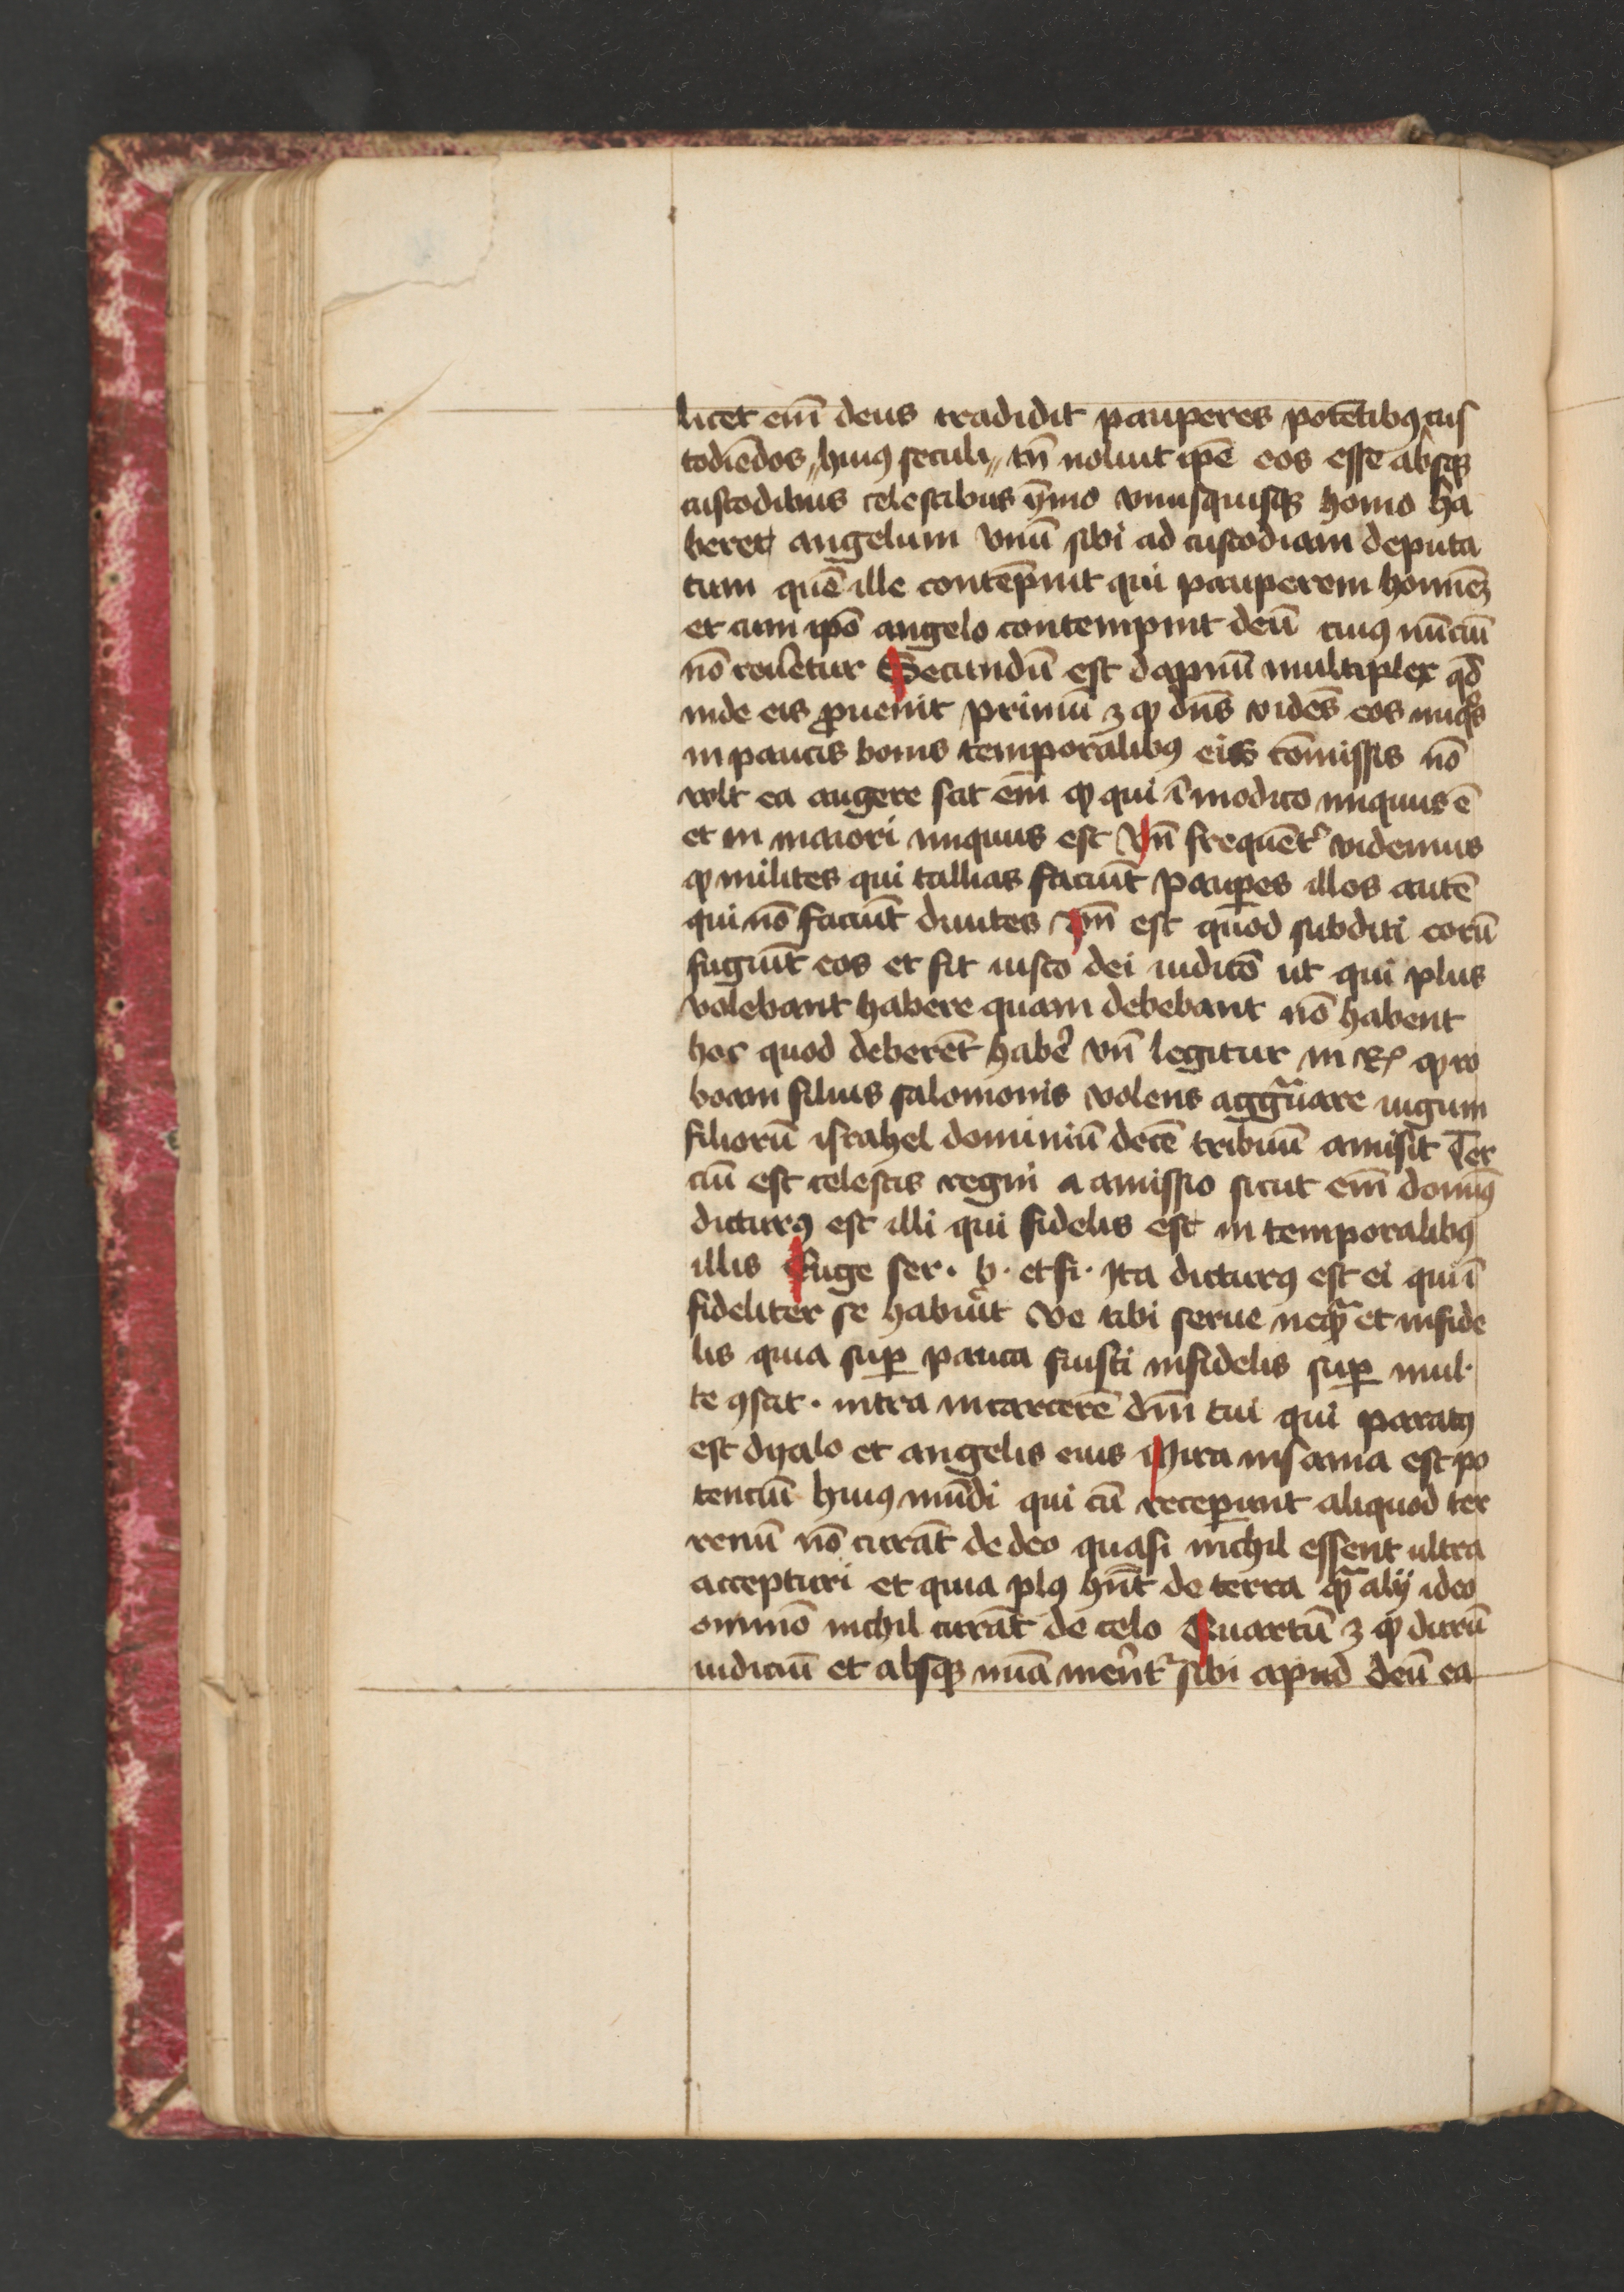 licet em̄ deus tradidit pauperes potētibꝯ cus
todiēdos „huiꝯ seculi„ tn̄ noluit ip̄e eos esse absqꝫ
custodibus celestibus ȳmo vnusquisqꝫ homo ha
beret angelum vnū sibi ad custodiam deputa
tum quē ille contēpnit qui pauperem hominēꝫ
et cum ip̄o angelo contempnit deū cuiꝯ nūciū
nō reuēetur Secundū est dapnū multiplex qd̄
inde eis ꝓuenit primū ꝫ ꝙ dn̄s vidēs eos iniqͦs
in paucis bonis temporalibꝯ eis cōmissis nō
volt ea augere scit em̄ ꝙ qui ī modico iniquus ē
et in maiori iniquus est Vn̄ frequēt᷑ videmus
ꝙ milites qui tallias faciūt pauꝑes illos autē
qui nō faciūt diuites Jm̄ est quod subditi eorū
fugiūt eos et fit iusto dei iudicō ut qui plus
volebant habere quam debebant nō habent
hoc quod deberēt habē vn̄ legitur in Rͤ ꝙ ro
boam filius salomonis volens aggᵃuare iugum
filiorū israhel dominiū decē tribuū amisit Ter
ciū est celestis regni a amissio sicut em̄ domiꝯ
dicturꝯ est illi qui fidelis est in temporalibꝯ
illis Euge ser. b. et fi. Ita dicturꝯ est ei qui ī
fideliter se habuīt Ve tibi serue neqᵃ et infide
lis quia suꝑ pauca fuisti infidelis suꝑ mul.
te ꝯstit. intra in carcerē dn̄i tui qui paratꝯ
est dyalo et angelis eius Mira insania est po
tenciū huiꝯ mūdi qui cū receperunt aliquod ter
renū nō curāt de deo quasi nichil essent ultra
accepturi et quia plꝯ hn̄t de terra qᵃ alij ideo
omnīo nichil curāt de celo Quartū ꝫ ꝙ durū
iudiciū et absqꝫ mīa merēt᷑ sibi apud deū ea